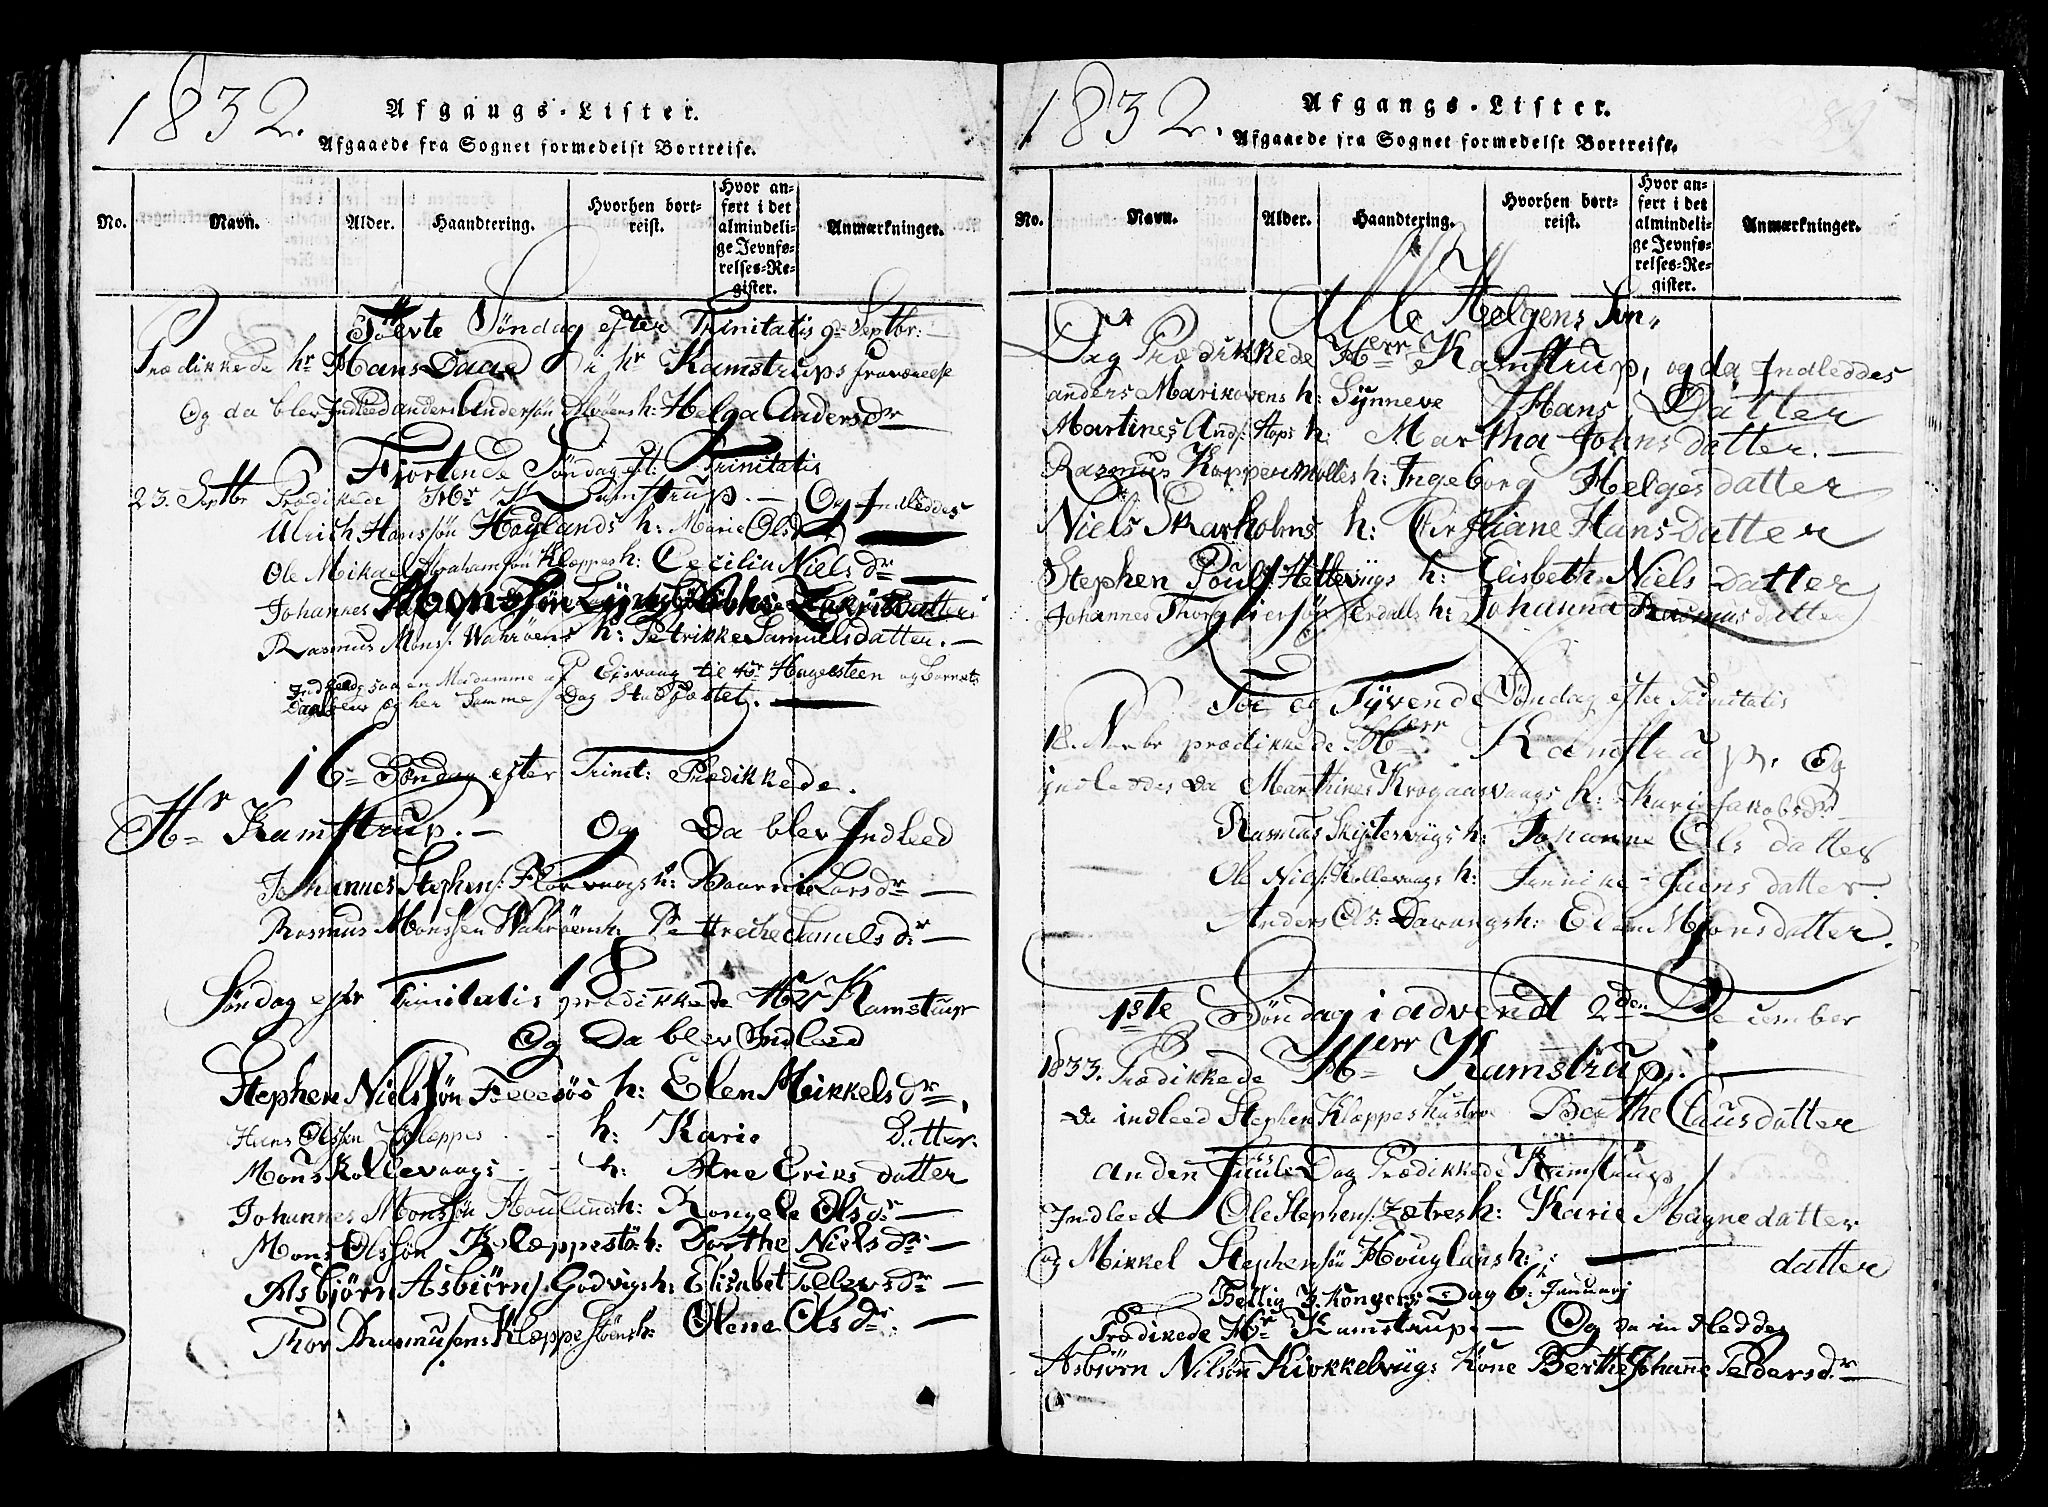 1832.
Afgangs-Lister.
Afgaaede fra Sognet formedelst Bortreise.
No.
Navn.
Alder.
Haandtering.
Hvorhen bort-
reist.
Hvor an-
ført i det
almindeli-
ge Jevnfø-
relses-Re-
gister.
Anmærkninger.
Tolvte Søndag efter Trinitatis 9de Septbr:
Prædikkede hr Hans Daae i hr Kamstrups fraværelse
Og da blev Indleed anders Andersøn h: Helga Andersdr
Fiortende Søndag eft: Trinitatis
23. Septbr Prædikede Hr Kamstrup. — Og Indleddes
Ulrich Hanssøn Hauglands h: Marie Olsdr
Ole Mikael Abrahamsøn Kleppes h: Cecilia Niels dr
Johannes Monssøn
Rasmus Mons: Wahrøens h: Petrikke Samuelsdatter. —
Eisvaag til Hr Hagelsteen og Barnets
Daab blev og her Samme Dag Stadfæstet.
16de Søndag efter Trinit: Prædikkede.
Hr Kamstrup. — Og Da blev Indleed
Johannes Stephens: Florvaags h: Larsdr —
Rasmus Monssen Wahrøens h: Pettreche Samuels dr —
18
Søndag eftr Trinitatis prædikkede Hr Kamstrup
Og Da blev Indleed
Stephen Nielssøn h: Elen Mikkels dr
Hans Olssen Kleppes - - h: Karie Datter.
Mons Kollevaags - - h: Ane Eriks datter
Johannes Monssøn Houlands h: Rongele Olsdr —
Mons Olssøn Kleppestø h: Dorthe Nielsdr: —
Asbjørn Asbiørns: Godvigs h: Elisabet Tollevsdr —
Thor Rasmusens Kleppestøens h: Olena Ols dr. —
1832.
Afgangs-Lister.
Afgaaede fra Sognet formedelst Bortreise.
No.
Navn.
Alder.
Haandtering.
Hvorhen bort-
reist.
Hvor an-
ført i det
almindeli-
ge Jevnfø-
relses-Re-
gister.
Anmærkninger.
Alle Helgens Søn,,
Dag Prædikkede Herr Kamstrup, og da Indleddes
anders Marikovens h: Synneve Hans Datter
Martines And: Hops h: Martha Johns datter. —
Rasmus Koppermølles h: Ingeborg Helges datter
Niels Skarholms h: Hans datter
Stephen Pouls: Hettevigs h: Elisbeth Niels datter
Johannes h: Johanna Rasmus datter
Toe og Tyvende Søndag efter Trinitatis
18. Novbr prædikkede Herr Kamstrup. Og
indleddes da Marthines Krogaasvaags h: Kari Jakobsdr
Rasmus Skiftesvigs h: Johanne Ols datter
Ole Nils: Kollevaags h: Jennike Juens datter.
Anders Ols: Davangs h: Elen Monsdatter.
1ste Søndag i advendt 2den December
1833. Prædikkede Herr Kamstrup. —
Da indleed Stephen Kleppes Hustroe Berthe Clausdatter
anden Juule Dag Prædikkede Kamstrup
Indleed Ole Stephens: Zætres h: Karie Magnedatter
og Mikkel Stephensøn Houglans h: datter
Hellig 3 Kongers Dag 6. Januarj
Prædikede Hr Kamstrup. — Og Da indleddes
Asbjørn Nilsøn Kirkkelvigs Kone Berthe Johanne Pedersdr